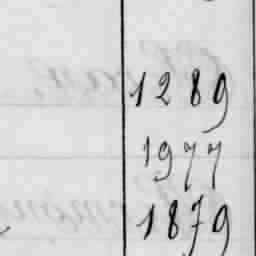 1289
1977
1879